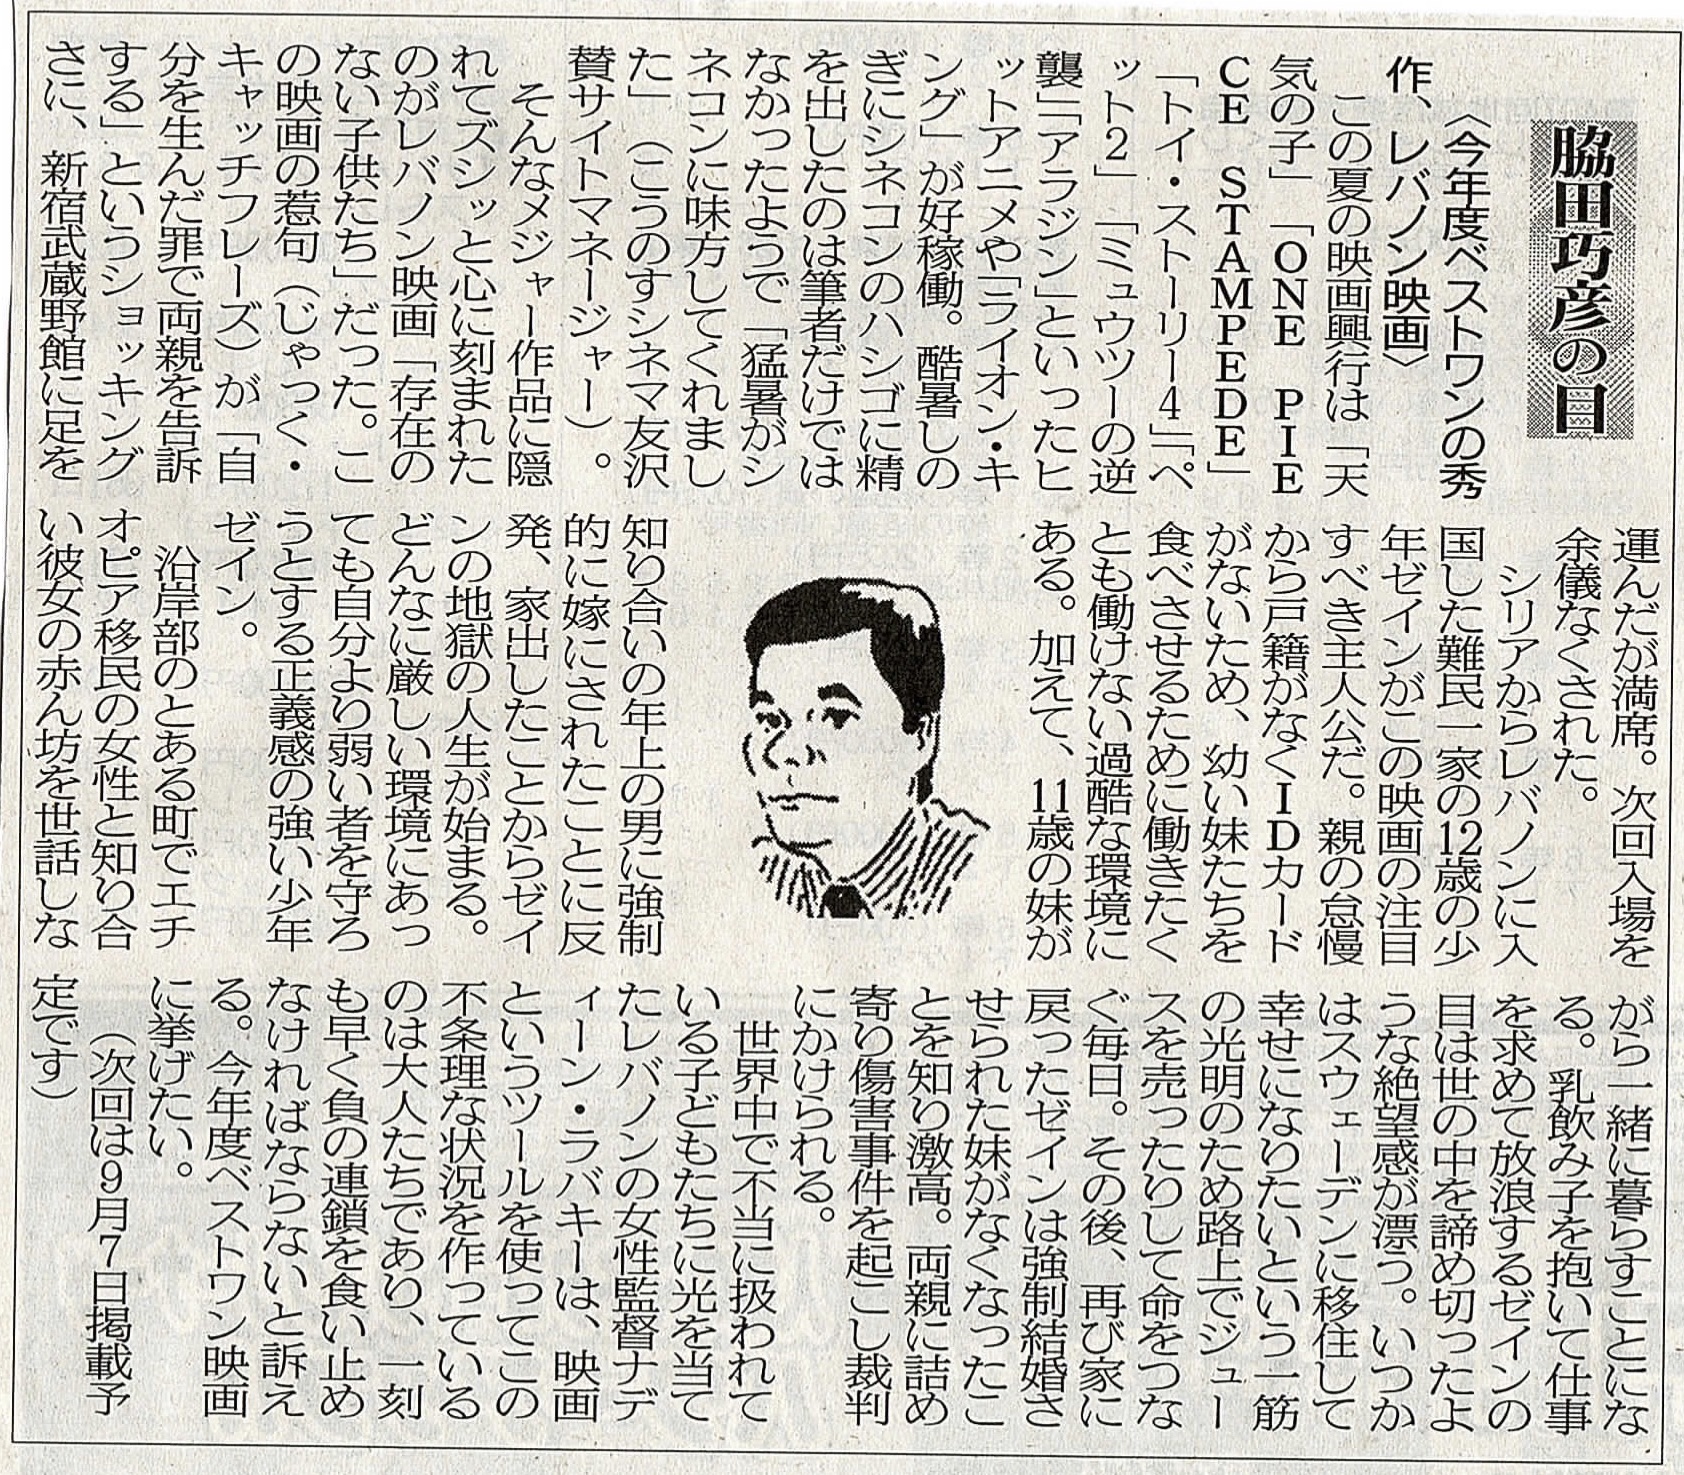 脇田巧彦の目
〈今年度ベストワンの秀
作、レバノン映画〉
この夏の映画興行は「天
気の子」「ONE PIE
CE STAMPEDE」
「トイ・ストーリー4」「ペ
ット2」「ミュウツーの逆
襲」「アラジン」といったヒ
ットアニメや「ライオン・キ
ング」が好稼働。酷暑しの
ぎにシネコンのハシゴに精
を出したのは筆者だけでは
なかったようで「猛暑がシ
ネコンに味方してくれまし
た」（こうのすシネマ友沢
賛サイトマネージャー）。
そんなメジャー作品に隠
れてズシッと心に刻まれた
のがレバノン映画「存在の
ない子供たち」だった。こ
の映画の惹句（じゃっく・
キャッチフレーズ）が「自
分を生んだ罪で両親を告訴
する」というショッキング
さに、新宿武蔵野館に足を
運んだが満席。次回入場を
余儀なくされた。
シリアからレバノンに入
国した難民一家の12歳の少
年ゼインがこの映画の注目
すべき主人公だ。親の怠慢
から戸籍がなくIDカード
がないため、幼い妹たちを
食べさせるために働きたく
とも働けない過酷な環境に
ある。加えて、11歳の妹が
知り合いの年上の男に強制
的に嫁にされたことに反
発、家出したことからゼイ
ンの地獄の人生が始まる。
どんなに厳しい環境にあっ
ても自分より弱い者を守ろ
うとする正義感の強い少年
ゼイン。
沿岸部のとある町でエチ
オピア移民の女性と知り合
い彼女の赤ん坊を世話しな
がら一緒に暮らすことにな
る。乳飲み子を抱いて仕事
を求めて放浪するゼインの
目は世の中を諦め切ったよ
うな絶望感が漂う。いつか
はスウェーデンに移住して
幸せになりたいという一筋
の光明のため路上でジュー
スを売ったりして命をつな
ぐ毎日。その後、再び家に
戻ったゼインは強制結婚さ
せられた妹がなくなったこ
とを知り激高。両親に詰め
寄り傷害事件を起こし裁判
にかけられる。
世界中で不当に扱われて
いる子どもたちに光を当て
たレバノンの女性監督ナデ
ィーン・ラバキーは、映画
というツールを使ってこの
不条理な状況を作っている
のは大人たちであり、一刻
も早く負の連鎖を食い止め
なければならないと訴え
る。今年度ベストワン映画
に挙げたい。
（次回は9月7日掲載予
定です）